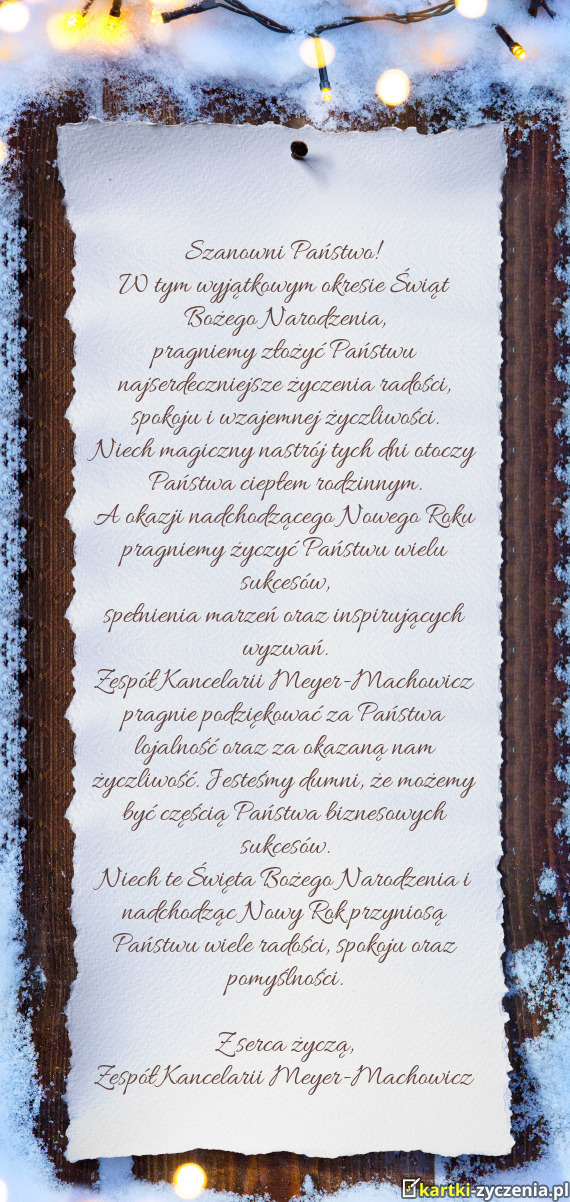 Szanowni Państwo!
W tym wyjątkowym okresie Świąt
Bożego Narodzenia,
pragniemy złożyć Państwu
najserdeczniejsze życzenia radości,
spokoju i wzajemnej życzliwości.
Niech magiczny nastrój tych dni otoczy
Państwa ciepłem rodzinnym.
A okazji nadchodzącego Nowego Roku
pragniemy życzyć Państwu wielu
sukcesów,
spełnienia marzeń oraz inspirujących
wyzwań.
Zespół Kancelarii Meyer-Machowicz
pragnie podziękować za Państwa
lojalność oraz za okazaną nam
życzliwość. Jesteśmy dumni, że możemy
być częścią Państwa biznesowych
sukcesów.
Niech te Święta Bożego Narodzenia i
nadchodząc Nowy Rok przyniosą
Państwu wiele radości, spokoju oraz
pomyślności.
Z serca życzą,
Zespół Kancelarii Meyer-Machowicz
kartki-zyczenia.pl